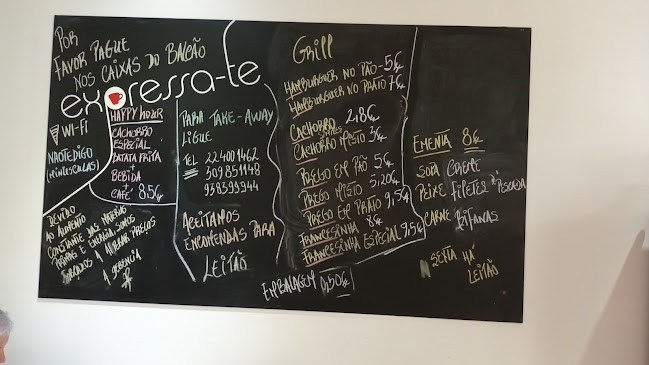 POR
FAVOR PAGUE
NOS CAIXAS DO BALCÃO
expressa-te
WI-FI
NAOTEDIGO
(MINUSCULAS)
HAPPY HOUR
CACHORRO
ESPECIAL
+
BATATA FRITA
+
BEBIDA
+
CAFÉ 8.5€
DEVIDO
AO AUMENTO
CONSTANTE DAS MATERIAS
PRIMAS E ENERGIA SOMOS
FORÇADOS A ALTERAR PREÇOS
A GERENCIA
PARA TAKE-AWAY
LIGUE
TEL 224001462
309851148
938593944
ACEITAMOS
ENCOMENDAS PARA
LEITÃO
Grill
HAMBURGUER NO PÃO - 5€
HAMBURGUER NO PRATO 7€
CACHORRO SIMPLES 2,8€
CACHORRO MISTO 3€
PREGO EM PÃO 5€
PREGO MISTO 5,20€
PREGO EM PRATO 9,5€
FRANCESINHA 8€
FRANCESINHA ESPECIAL 9,5€
EMBALAGEM 0,50€
EMENTA 8€
SOPA CREME
PEIXE FILETES PESCADA
CARNE BIFANAS
SEXTA HÁ
LEITÃO